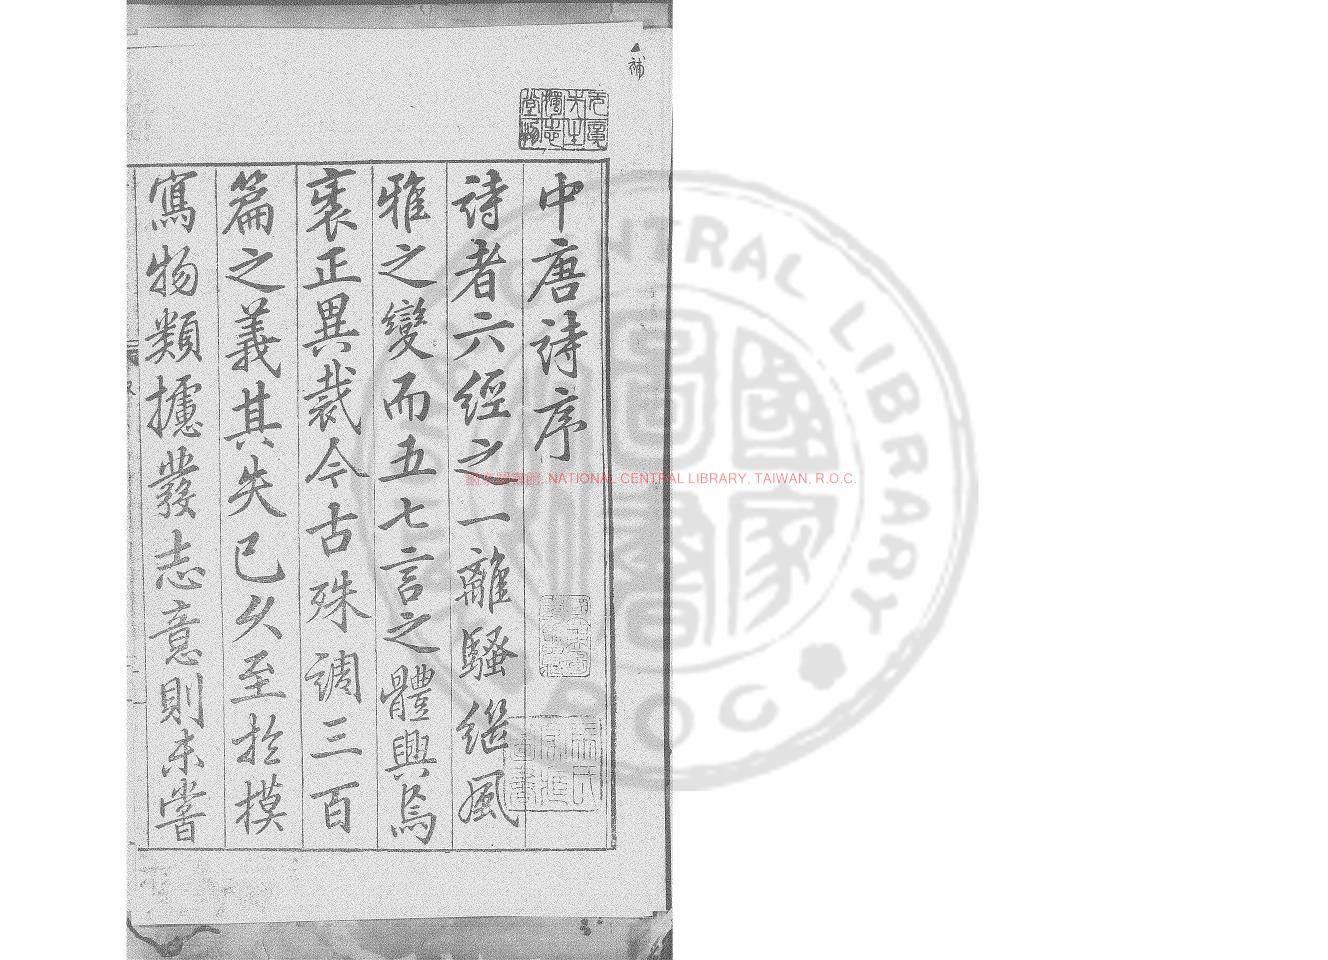 補
中唐詩序
詩者六經之一離騷繼風
雅之變而五七言之體興焉
裏正異裁今古殊調三百
篇之義其失已久至於摸
寫物類攄發志意則未嘗
國家圖書館, NATIONAL CENTRAL LIBRARY, TAIWAN, R.O.C.
NATIONAL CENTRAL LIBRARY
ROC
國家圖書